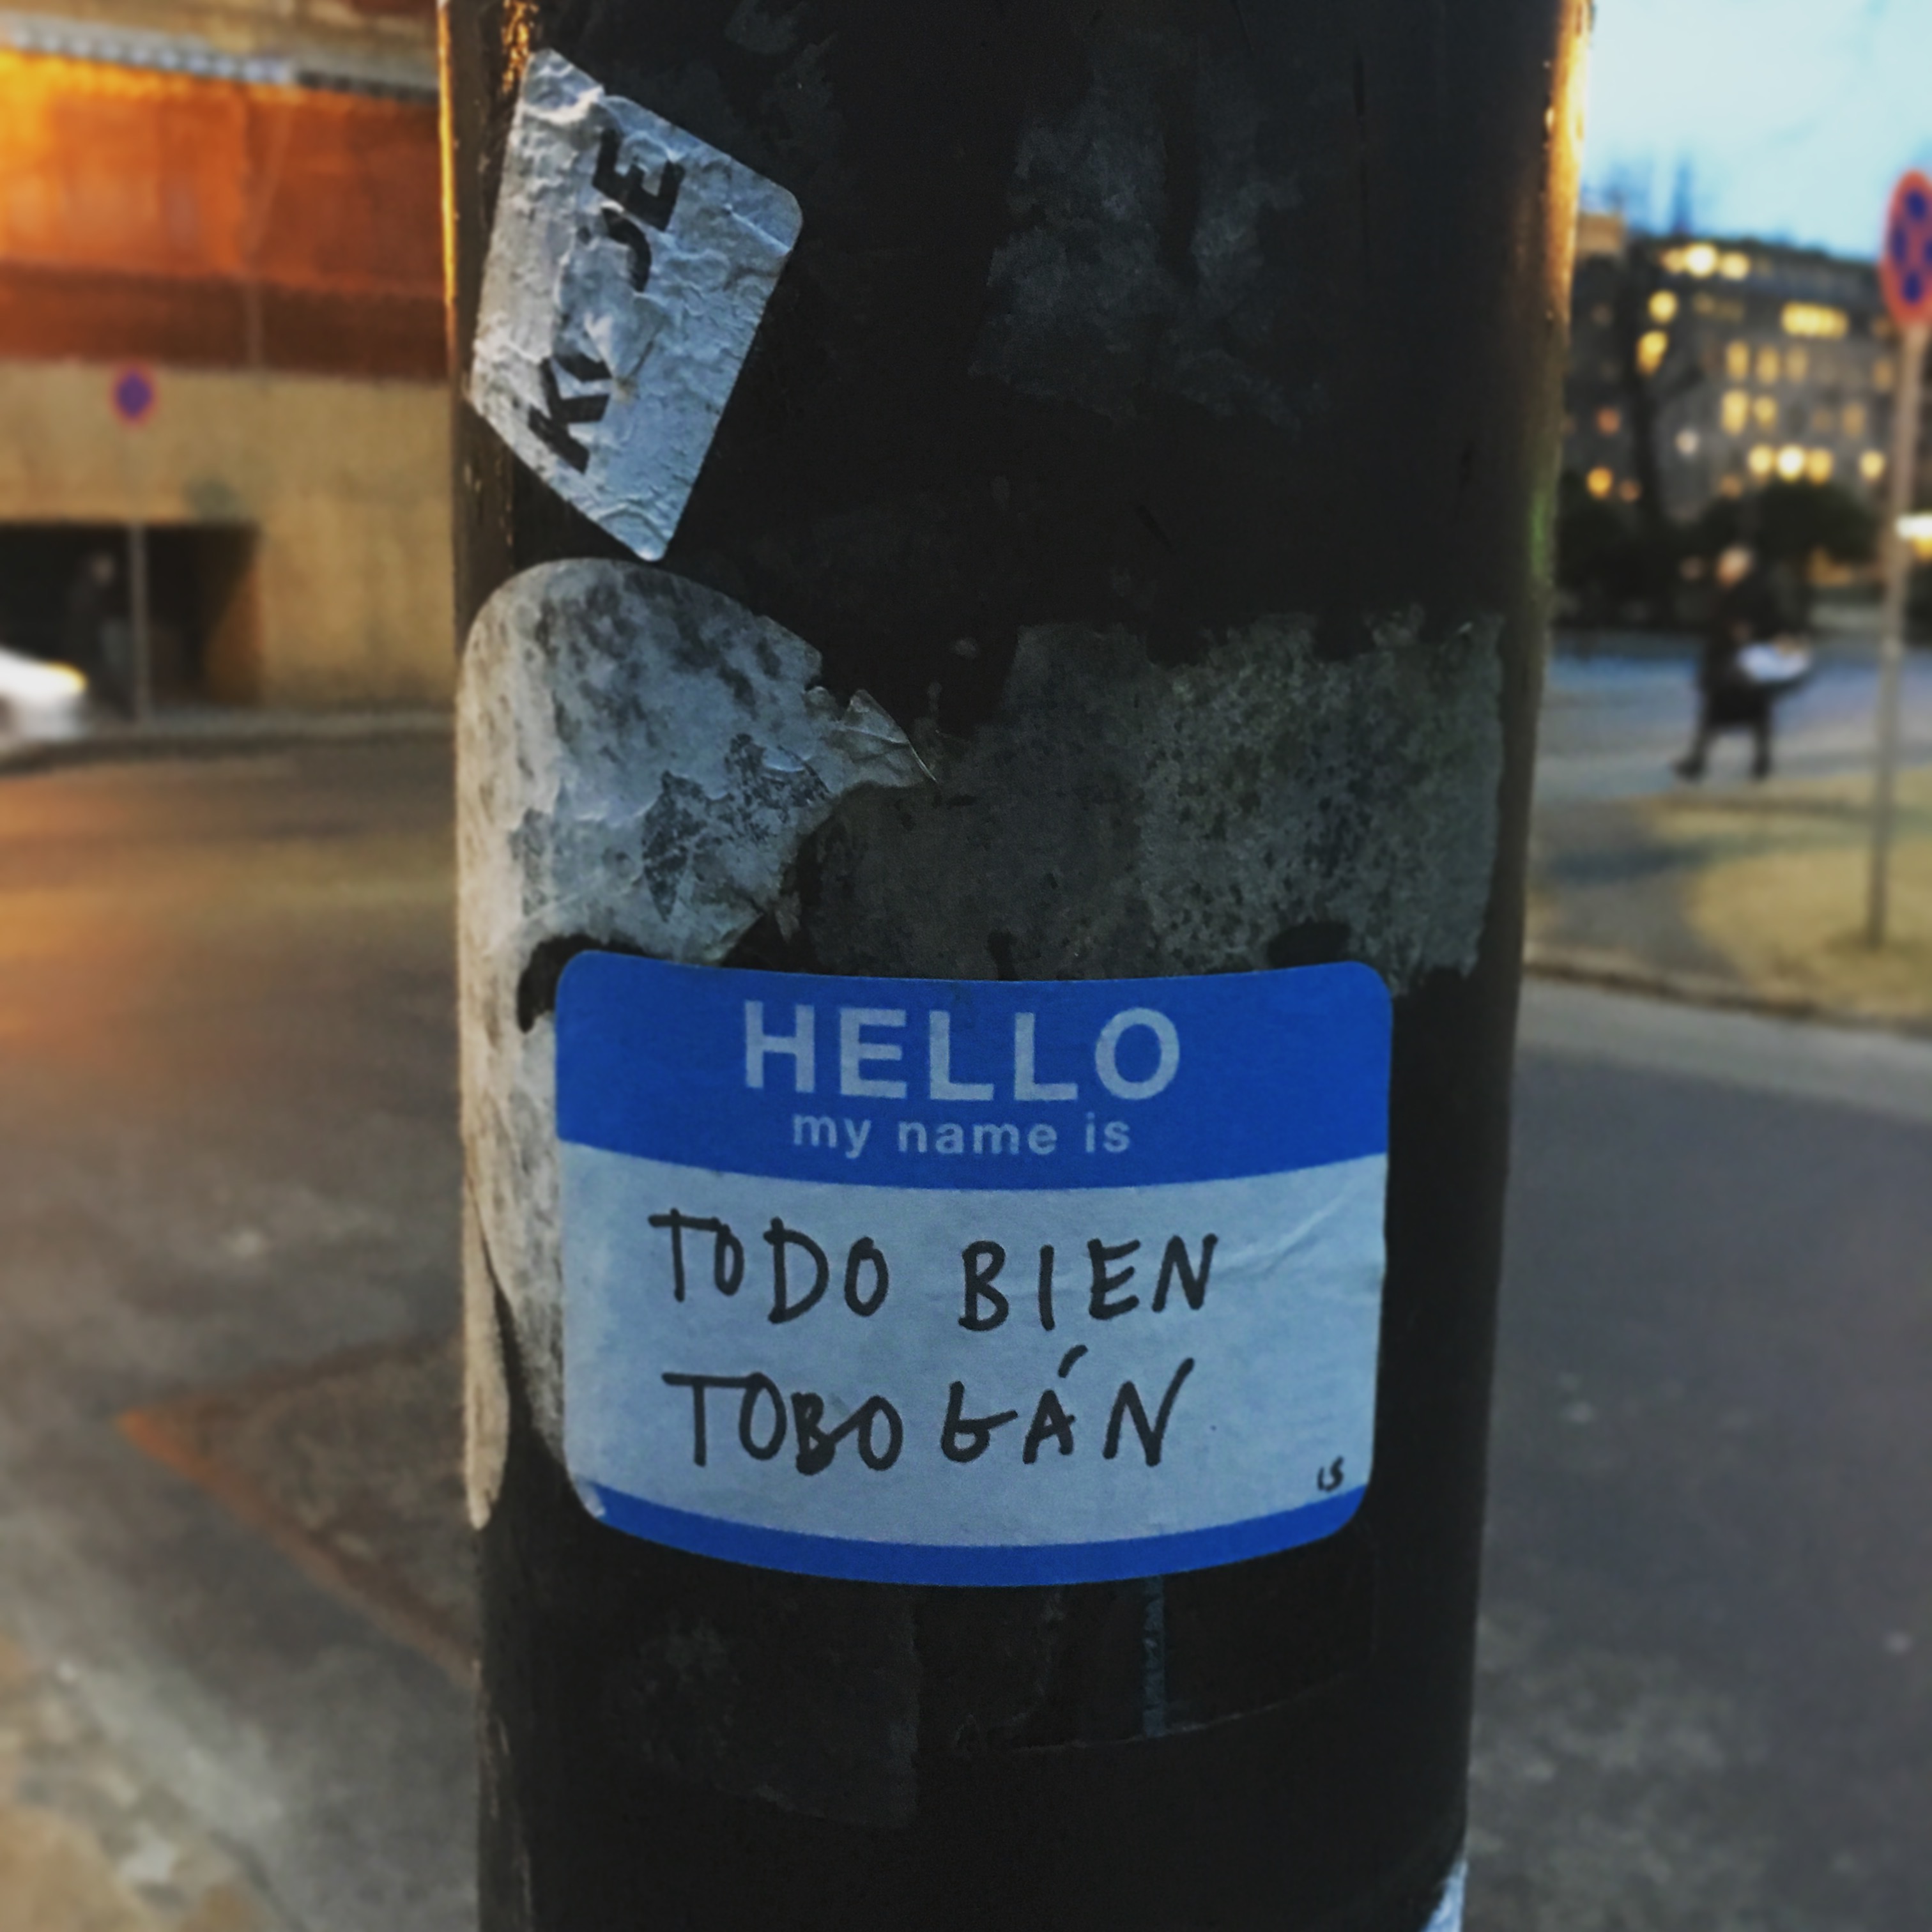 KIJE
HELLO
my name is
TODO BIEN
TOBOGÁN